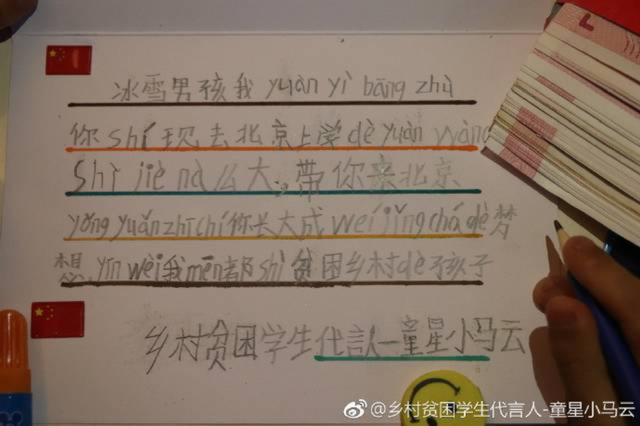 冰雪男孩我 yuàn yì bāng zhù
你 shí 现去北京上学 dè yuàn wàng
Shì jiè nà 么大。带你来北京
yǒng yuǎn zhī chí 你长大成 wéi jǐng chá dè 梦
想, yīn wèi 我 mēn 都 shì 贫困乡村 dè 孩子
乡村贫困学生代言人—童星小马云
@乡村贫困学生代言人-童星小马云